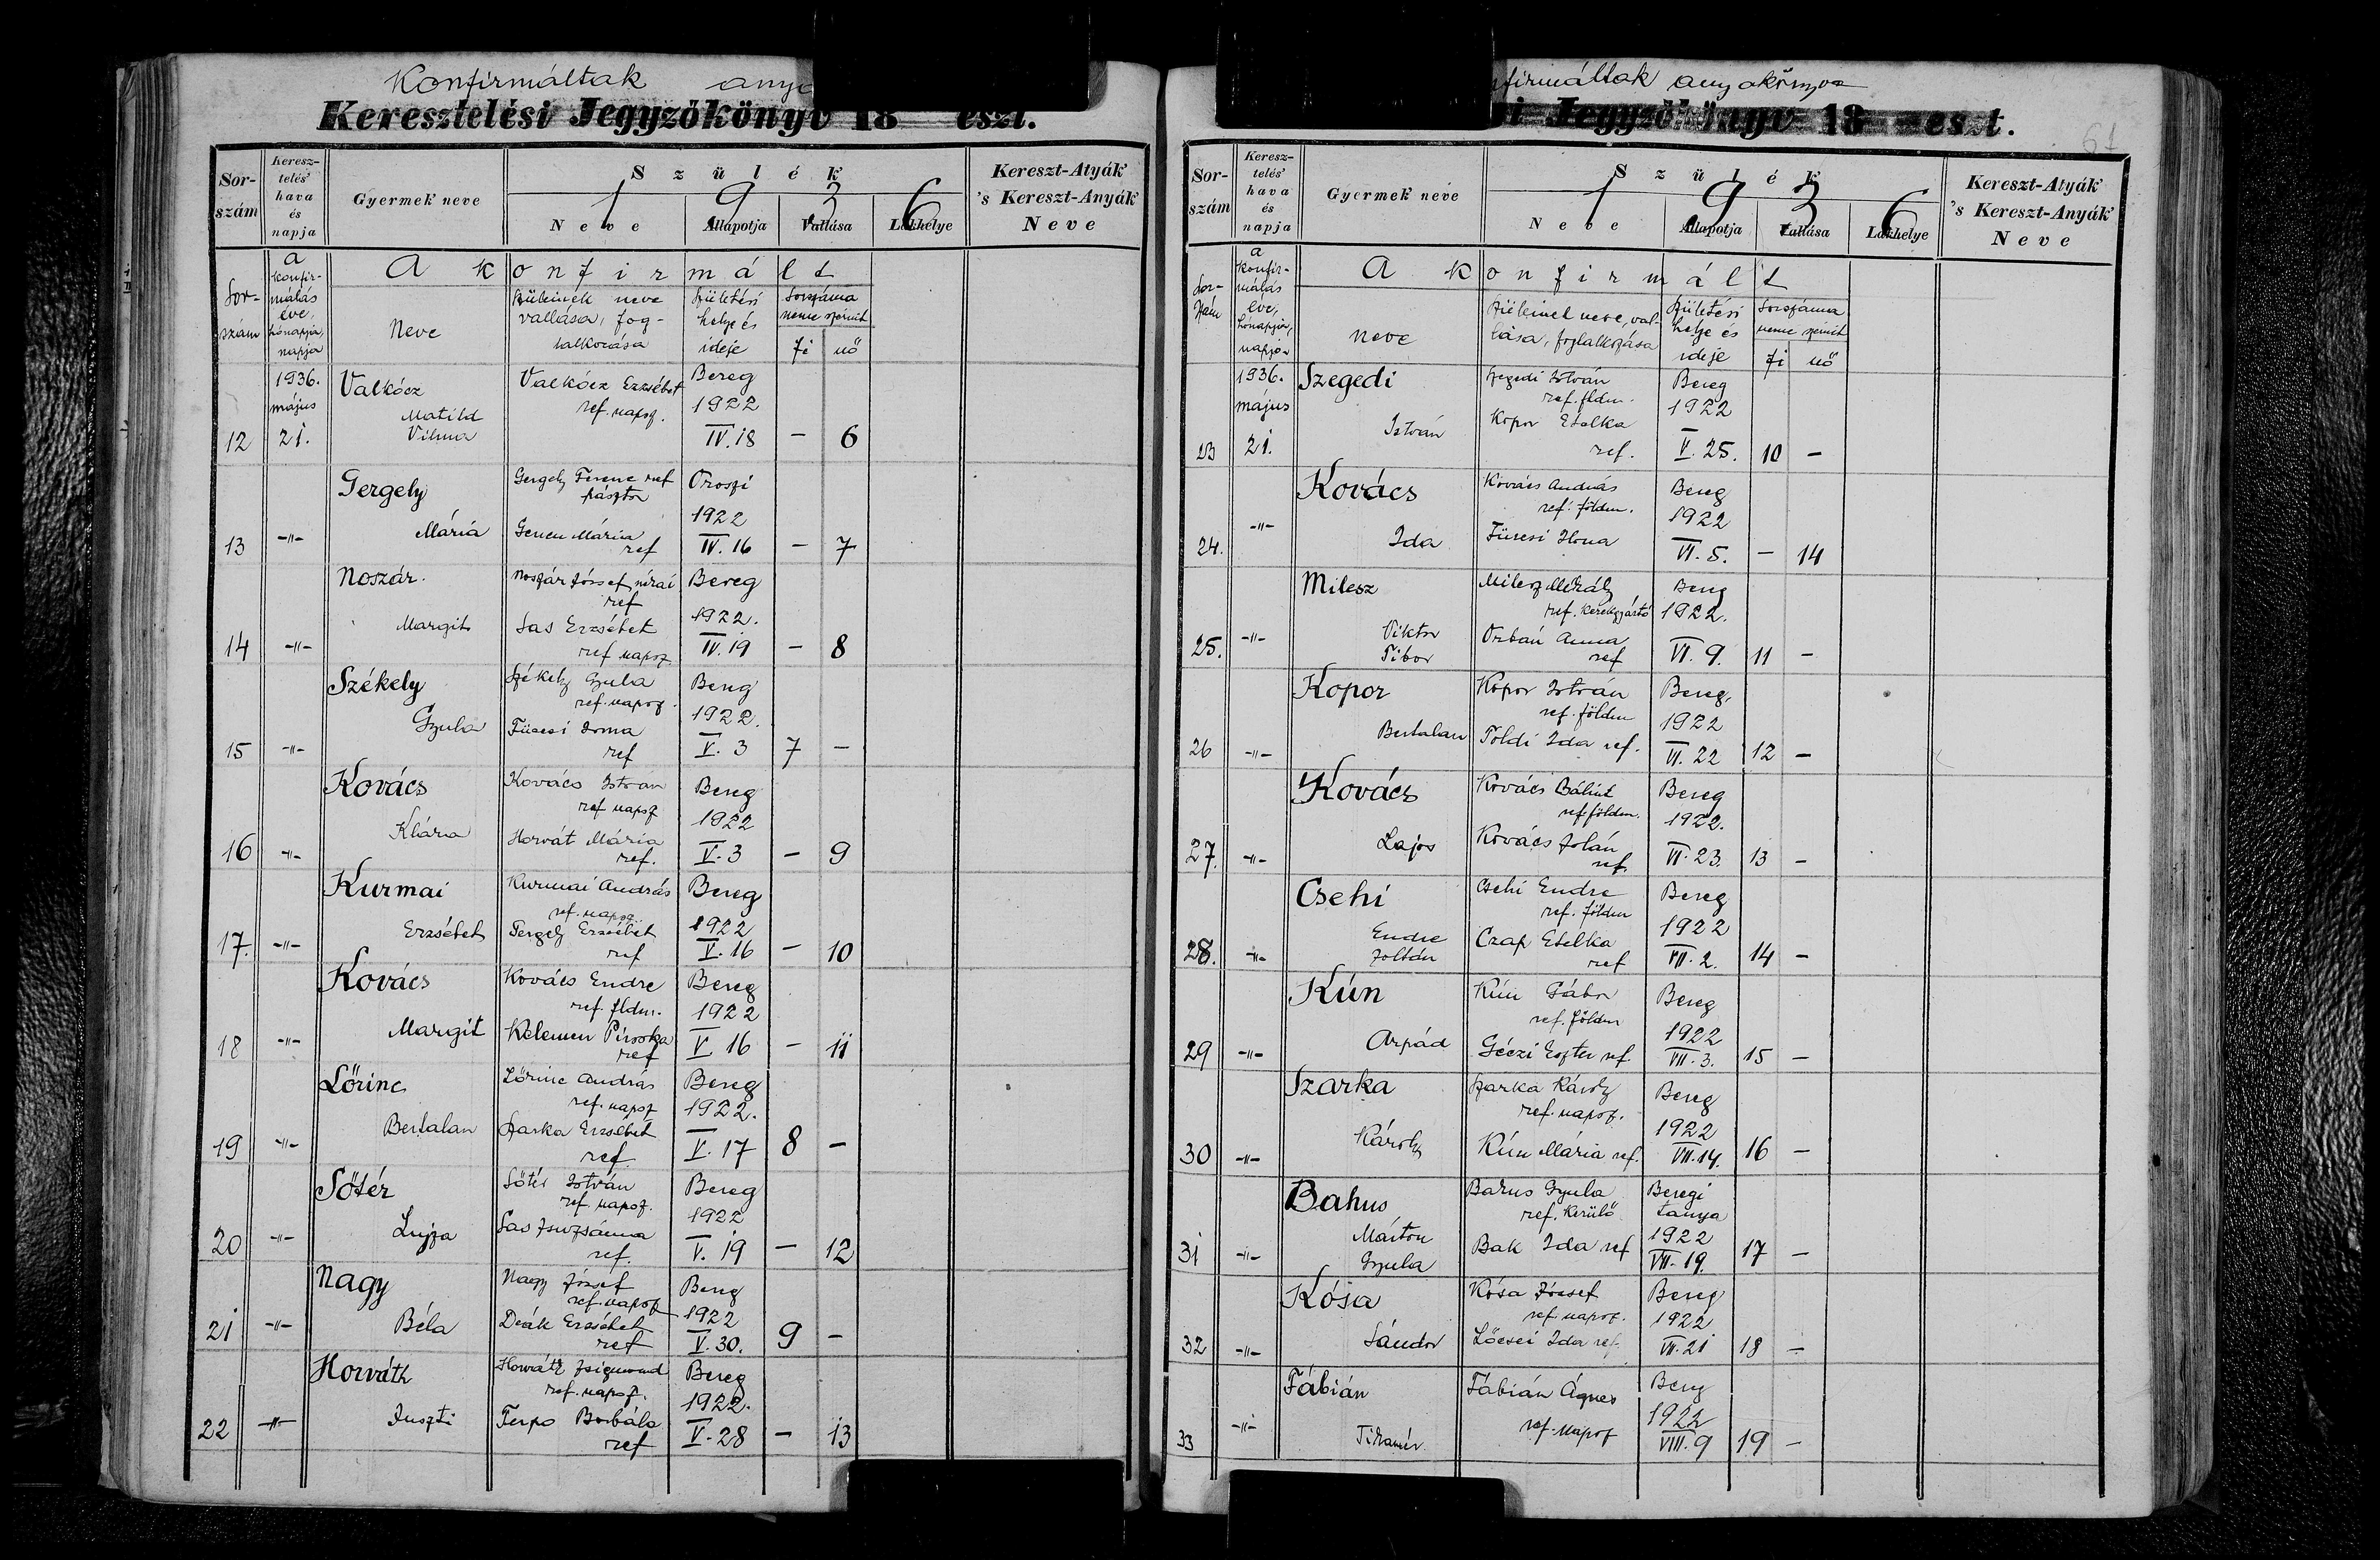 Konfirmáltak
Keresztelési Jegyzőkönyv 18 eszt.
Sor-
szám
Keresz-
telés'
hava
és
napja
Gyermek neve
Szülék
1 9 3 6
Neve
Állapotja
Vallása
Lakhelye
Kereszt-Atyák'
's Kereszt-Anyák'
Neve
A konfirmált
Sor-
szám
a
konfir-
málás
éve,
hónapja,
napja
Neve
szüleinek neve
vallása, fog-
lalkozása
születési
helye és
ideje
sorszáma
neme szerint
fi nő
1936.
május
12 21.
Valkócz
Matild
Vilma
Valkócz Erzsébet
ref. napsz.
Bereg
1922
IV. 18
- 6
13 -"-
Gergely
Mária
Gergely Ferenc ref
pásztor
Mária
ref
Oroszi
1922
IV. 16
- 7
14 -"-
Noszár
Margit
Noszár József
ref
Sas Erzsébet
ref napsz.
Bereg
1922.
IV. 19
- 8
15 -"-
Székely
Gyula
Székely Gyula
ref. napsz.
Fürcsi
ref
Bereg
1922.
V. 3
7 -
16 -"-
Kovács
Klára
Kovács István
ref napsz
Horvát Mária
ref.
Bereg
1922
V. 3
- 9
17. -"-
Kurmai
Erzsébet
Kurmai András
ref. napsz.
Gergely Erzsébet
ref
Bereg
1922
V. 16
- 10
18 -"-
Kovács
Margit
Kovács Endre
ref. fldm.
Kelemen Piroska
ref
Bereg
1922
V. 16
- 11
19 -"-
Lőrinc
Bertalan
Lőrinc András
ref. napsz
Szarka Erzsébet
ref.
Bereg
1922.
V. 17
8 -
20 -"-
Sőtér
Lujza
Sőtér István
ref. napsz.
Sas Zsuzsánna
ref.
Bereg
1922
V. 19
- 12
21 -"-
Nagy
Béla
Nagy József
ref. napsz
Deák Erzsébet
ref
Bereg
1922
V. 30.
9 -
22 -"-
Horváth
Juszti
Horváth Zsigmond
ref. napsz.
Terpo Borbála
ref
Bereg
1922.
V. 28
- 13
anyakönyve
Jegyzőkönyv 18 eszt.
61
Sor-
szám
Keresz-
telés'
hava
és
napja
Gyermek neve
Szülék
1 9 3 6
Neve
Állapotja
Vallása
Lakhelye
Kereszt-Atyák'
's Kereszt-Anyák'
Neve
A konfirmált
Sor-
szám
a
konfir-
málás
éve,
hónapja,
napja
neve
szüleinek neve, val-
lása, foglalkozása
születési
helye és
ideje
sorszáma
neme szerint
fi nő
1936.
május
23 21.
Szegedi
István
Szegedi István
ref. fldm.
Kopor Etelka
ref.
Bereg
1922
V. 25.
10 -
24. -"-
Kovács
Ida
Kovács András
ref. földm.
Fürcsi Ilona
Bereg
1922
VI. 5.
- 14
25. -"-
Milesz
Viktor
Tibor
Milesz Mihály
ref. kerékgyártó
Orbán Anna
ref
Bereg
1922.
VI. 9.
11 -
26 -"-
Kopor
Bertalan
Kopor István
ref. földm
Toldi Ida ref.
Bereg,
1922
VI. 22
12 -
27. -"-
Kovács
Lajos
Kovács Bálint
ref földm.
Kovács Jolán
ref.
Bereg
1922.
VI. 23.
13 -
28. -"-
Csehi
Endre
Zoltán
Csehi Endre
ref. földm
Czap Etelka
ref
Bereg
1922
VII. 2.
14 -
29 -"-
Kún
Árpád
Kún Gábor
ref. földm
Géczi Eszter ref.
Bereg
1922
VII. 3.
15 -
30 -"-
Szarka
Károly
Szarka Károly
ref. napsz.
Kún Mária ref.
Bereg
1922
VII. 14.
16 -
31 -"-
Bahus
Márton
Gyula
Bahus Gyula
ref. kerülő
Bak Ida ref
Beregi
tanya
1922
VII. 19.
17 -
32 -"-
Kósa
Sándor
Kósa József
ref. napsz.
Lőcsei Ida ref.
Bereg
1922
VII. 21
18 -
33 -"-
Fábián
Tihamér
Fábián Ágnes
ref. napsz
Bereg
1922
VIII. 9
19 -